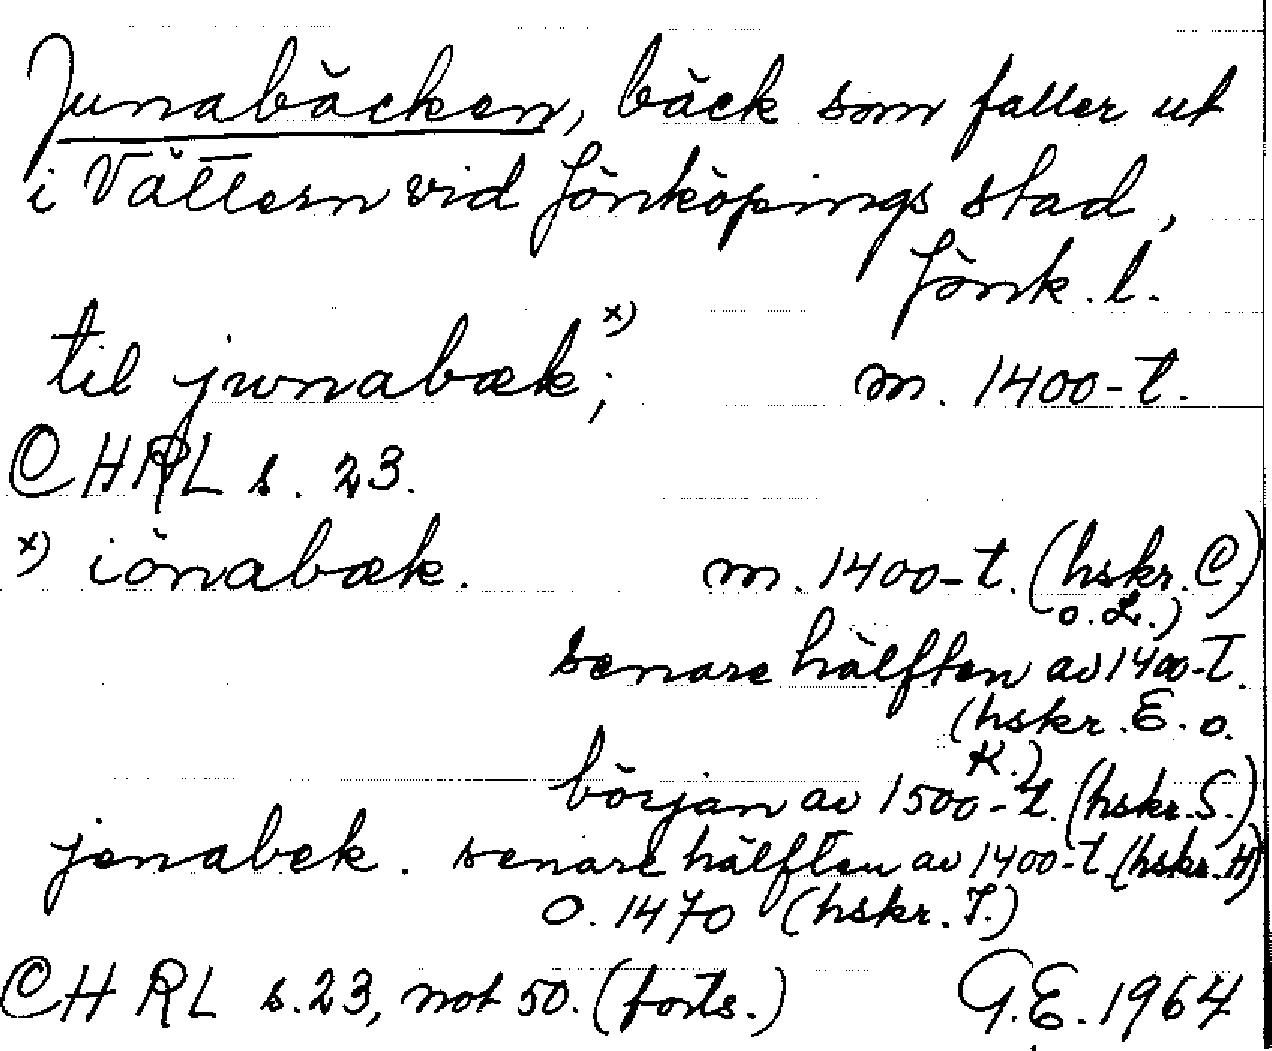 Junabäcken, bäck som faller ut
i Vättern vid Jönköpings stad,
Jönk. l.
til jwnabæk;ˣ⁾ m. 1400-t.
CHRL s. 23.
ˣ⁾ iönabæk. m. 1400-t. (hskr. C.
o. L.)
senare hälften av 1400-t.
(hskr. E. o.
K.)
början av 1500-t. (hskr. S.)
jenabek. senare hälften av 1400-t. (hskr. H)
o. 1470 (hskr. I.)
CHRL s. 23, not 50. (forts.) G.E. 1964